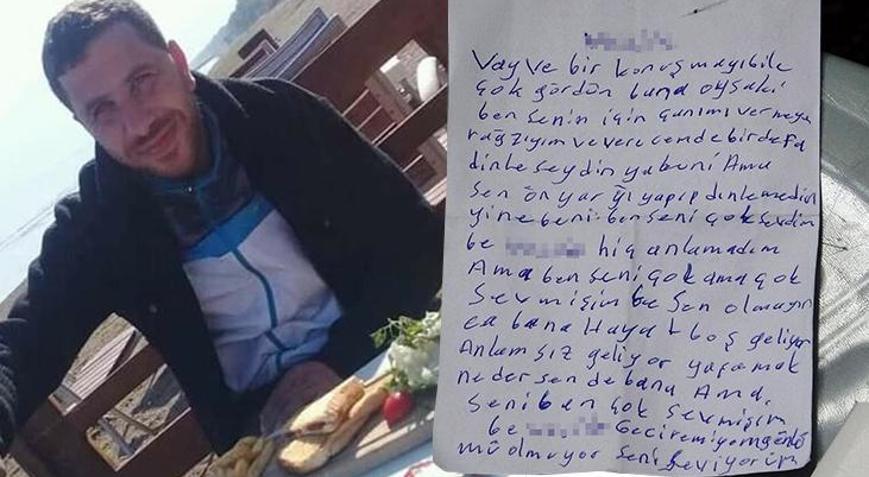 Vay ve bir konuşmayı bile
çok gördün bana oysaki
ben senin için canımı vermeye
rağzıyım ve verecemde bir defa
dinleseydin yabuni Ama
sen ön yarğı yapıp dinlemedin
yine beni. ben seni çok sevdim
be hiç anlamadım
Ama ben seni çok ama çok
Sevmişim be Sen olmayın
ca bana Hayat boş geliyor
Anlamsız geliyor yaşamak
nedersen de bana Ama.
Seni ben çok sevmişim
be Geciremiyom gönlü
mü olmuyor seni seviyorum